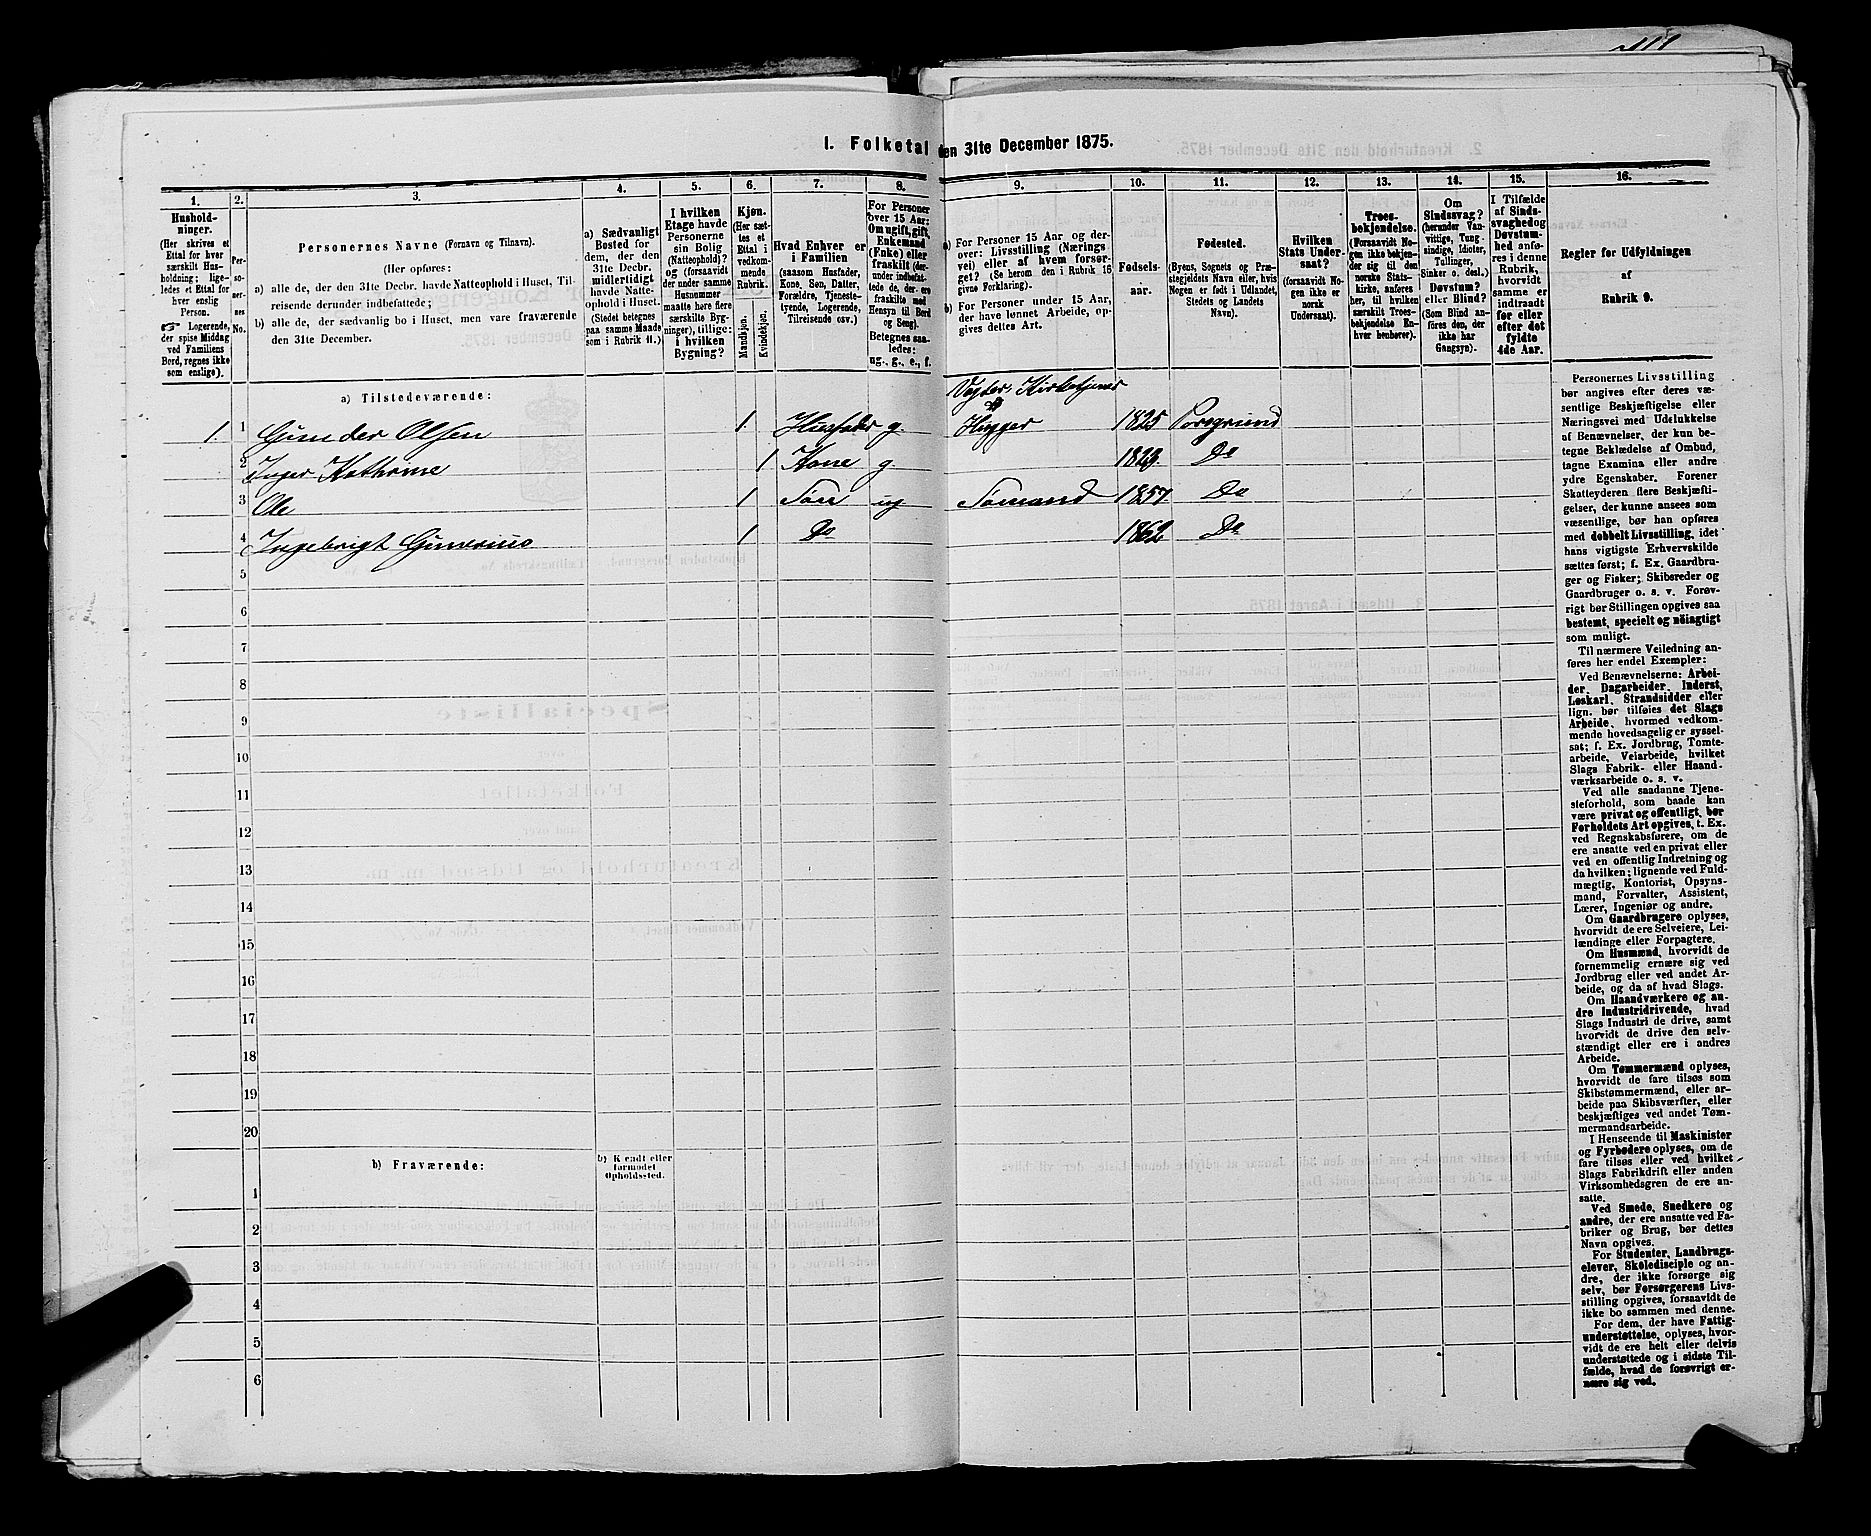 1. Folketal den 31te December 1875.
1. 2. 3. 4. 5. 6. 7. 8. 9. 10. 11. 12. 13. 14. 15. 16.
Hushold-
ninger.
(Her skrives et
Ettal for hver
særskilt Hus-
holdning; lige-
ledes et Ettal for
hver enslig
Person.
☞ Logerende,
der spise Middag
ved Familiens
Bord, regnes ikke
som enslige).
Per-
so-
ner-
nes
No.
Personernes Navne (Fornavn og Tilnavn).
(Her opføres:
a) alle de, der den 31te Decbr. havde Natteophold i Huset, Til-
reisende derunder indbefattede;
b) alle de, der sædvanlig bo i Huset, men vare fraværende
den 31te December.
a) Sædvanligt
Bosted for
dem, der den
31te Decbr.
midlertidigt
havde Natte-
ophold i Huset.
(Stedet betegnes
paa samme Maade
som i Rubrik 11.)
I hvilken
Etage havde
Personerne
sin Bolig
(Natteophold)?
og (forsaavidt
der under samme
Husnummer
maatte høre flere
særskilte Byg-
ninger), tillige:
i hvilken
Bygning?
Kjøn.
(Her sæt-
tes et
Ettal i
vedkom-
mende
Rubrik.
Mandkjøn.
Kvindekjøn.
Hvad Enhver er
i Familien
(saasom Husfader,
Kone, Søn, Datter,
Forældre, Tjeneste-
tyende, Logerende,
Tilreisende osv.)
For Personer
over 15 Aar:
Om ugift, gift,
Enkemand
(Enke) eller
fraskilt (der-
under indbefat-
tede de, der ere
fraskilte med
Hensyn til Bord
og Seng).
Betegnes saa-
ledes:
ug., g., e., f.
a) For Personer 15 Aar og der-
over: Livsstilling (Nærings-
vei) eller af hvem forsør-
get? (Se herom den i Rubrik 16
givne Forklaring).
b) For Personer under 15 Aar,
der have lønnet Arbeide, op-
gives dettes Art.
Fødsels-
aar.
Fødested.
(Byens, Sognets og Præ-
stegjeldets Navn eller, hvis
Nogen er født i Udlandet,
Stedets og Landets
Navn).
Hvilken
Stats Under-
saat?
(forsaavidt No-
gen ikke er
norsk
Undersaat).
Troes-
bekjendelse.
(Forsaavidt No-
gen ikke bekjen-
der sig til den
norske Stats-
kirke, anføres
her, til hvilken
særskilt Troes-
bekjendelse En-
hver henhører).
Om
Sindssvag?
(herunder Van-
vittige, Tung-
sindige, Idioter,
Tullinger,
Sinker o. desl.)
Døvstum?
eller Blind?
(Som Blind an-
føres den, der
ikke har
Gangsyn).
I Tilfælde
af Sinds-
svaghed og
Døvstum-
hed anfø-
res i denne
Rubrik,
hvorvidt
samme er
indtraadt
før eller
efter det
fyldte
4de Aar.
Regler for Udfyldningen
af
Rubrik 9.
a) Tilstedeværende:
Vægter, Kirketjener
1. 1 Gunder Olsen 1 Husfader g. Hugger 1825 Porsgrund
2 Inger Kathrine 1 Kone g. Do
3 Ole 1 Søn ug Sømand 1857 Do
4 Ingebrigt Gunerius 1 Do 1862 Do
5
6
7
8
9
10
11
12
13
14
15
16
17
18
19
20
b) Fraværende:
b) Kjendt eller
formodet
Opholdssted.
1
2
3
4
5
6
Personernes Livsstilling
bør angives efter deres væ-
sentlige Beskjæftigelse eller
Næringsvei med Udelukkelse
af Benævnelser, der kun be-
tegne Beklædelse af Ombud,
tagne Examina eller andre
ydre Egenskaber. Forener
Skatteyderen flere Beskjæfti-
gelser, der kunne ansees som
væsentlige, bør han opføres
med dobbelt Livsstilling, idet
hans vigtigste Erhvervskilde
sættes først; f. Ex. Gaardbru-
ger og Fisker; Skibsreder og
Gaardbruger o. s. v. Forøv-
rigt bør Stillingen opgives saa
bestemt, specielt og nöiagtigt
som muligt.
Til nærmere Veiledning an-
føres her endel Exempler:
Ved Benævnelserne: Arbei-
der, Dagarbeider, Inderst,
Løskarl, Strandsidder eller
lign. bør tilføies det Slags
Arbeide, hvormed vedkom-
mende hovedsagelig er syssel-
sat; f. Ex. Jordbrug, Tomte-
arbeide, Veiarbeide, hvilket
Slags Fabrik- eller Haand-
værksarbeide o. s. v.
Ved alle saadanne Tjene-
steforhold, som baade kan
være privat og offentligt, bør
Forholdets Art opgives, t. Ex.
ved Regnskabsførere, om de
ere ansatte ved en privat eller
ved en offentlig Indretning og
da hvilken; lignende ved Fuld-
mægtig, Kontorist, Opsyns-
mand, Forvalter, Assistent,
Lærer, Ingeniør og andre.
Om Gaardbrugere oplyses,
hvorvidt de ere Selveiere, Lei-
lændinge eller Forpagtere.
Om Husmænd, hvorvidt de
fornemmelig ernære sig ved
Jordbrug eller ved andet Ar-
beide, og da af hvad Slags.
Om Haandværkere og an-
dre Industridrivende, hvad
Slags Industri de drive, samt
hvorvidt de drive den selv-
stændigt eller ere i andres
Arbeide.
Om Tømmermænd oplyses,
hvorvidt de fare tilsøs som
Skibstømmermænd, eller ar-
beide paa Skibsværfter, eller
beskjæftiges ved andet Tøm-
mermandsarbeide.
I Henseende til Maskinister
og Fyrbødere oplyses, om de
fare tilsøs eller ved hvilket
Slags Fabrikdrift eller anden
Virksomhedsgren de ere an-
satte.
Ved Smede, Snedkere og
andre, der ere ansatte ved Fa-
briker og Brug, bør dettes
Navn opgives.
For Studenter, Landbrugs-
elever, Skoledisciple og an-
dre, der ikke forsørge sig
selv, bør Forsørgerens Livs-
stilling opgives, forsaavidt de
ikke bo sammen med denne.
For dem, der have Fattig-
understøttelse, oplyses, hvor-
vidt de ere helt eller delvis
understøttede og i sidste Til-
fælde, hvad de forøvrigt er-
nære sig ved.